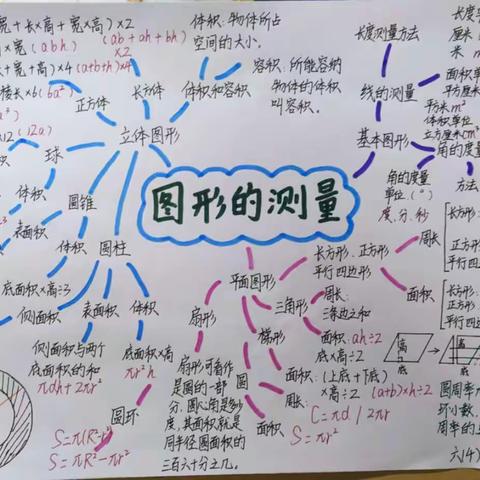 宽+长×高+宽×高)×2
(ab+ah+bh)×2
×宽(abh)
+宽+高)×4(a+b+h)×4
棱长×6(6a²)
×12(12a)
正方体
长方体
体积和容积
体积:物体所占
空间的大小。
容积:所能容纳
物体的体积
叫容积。
立体图形
球
体积
圆锥
表面积
体积
圆柱
底面积×高÷3
侧面积
表面积
体积
侧面积与两个
底面积的和
πdh+2πr²
底面积×高
πr²h
图形的测量
长度测量方法
线的测量
基本图形
长度
厘米
米 m
面积单
平方厘米
平方米m²
体积单位
立方厘米cm³
角的度量
角的度量
单位:(°)
度、分、秒
方法
平面图形
长方形、正方形
平行四边形
周长
面积
长方形:
正方形
平行四边
长方形:
正方形:
平行四边
三角形
周长:
三条边之和
面积:ah÷2
底×高÷2
梯形
面积:(上底+下底)
×高÷2 (a+b)×h÷2
圆
周长:
C=πd/2πr
面积
S=πr²
扇形
扇形可看作
是圆的一部
分,圆心角是多少
度,其面积就是
同半径圆面积的
三百六十分之几。
圆环
S=π(R²-r²)
S=πR²-πr²
高
底
高
底
圆周率
环小数,
周率的
六(4)